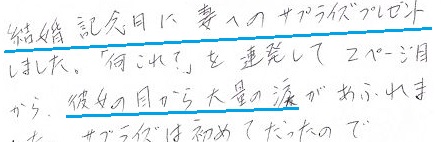 結婚記念日に妻へのサプライズプレゼント
しました。「何これ?」を連発して2ページ目
から、彼女の目から大量の涙があふれま
した。サプライズは初めてだったので